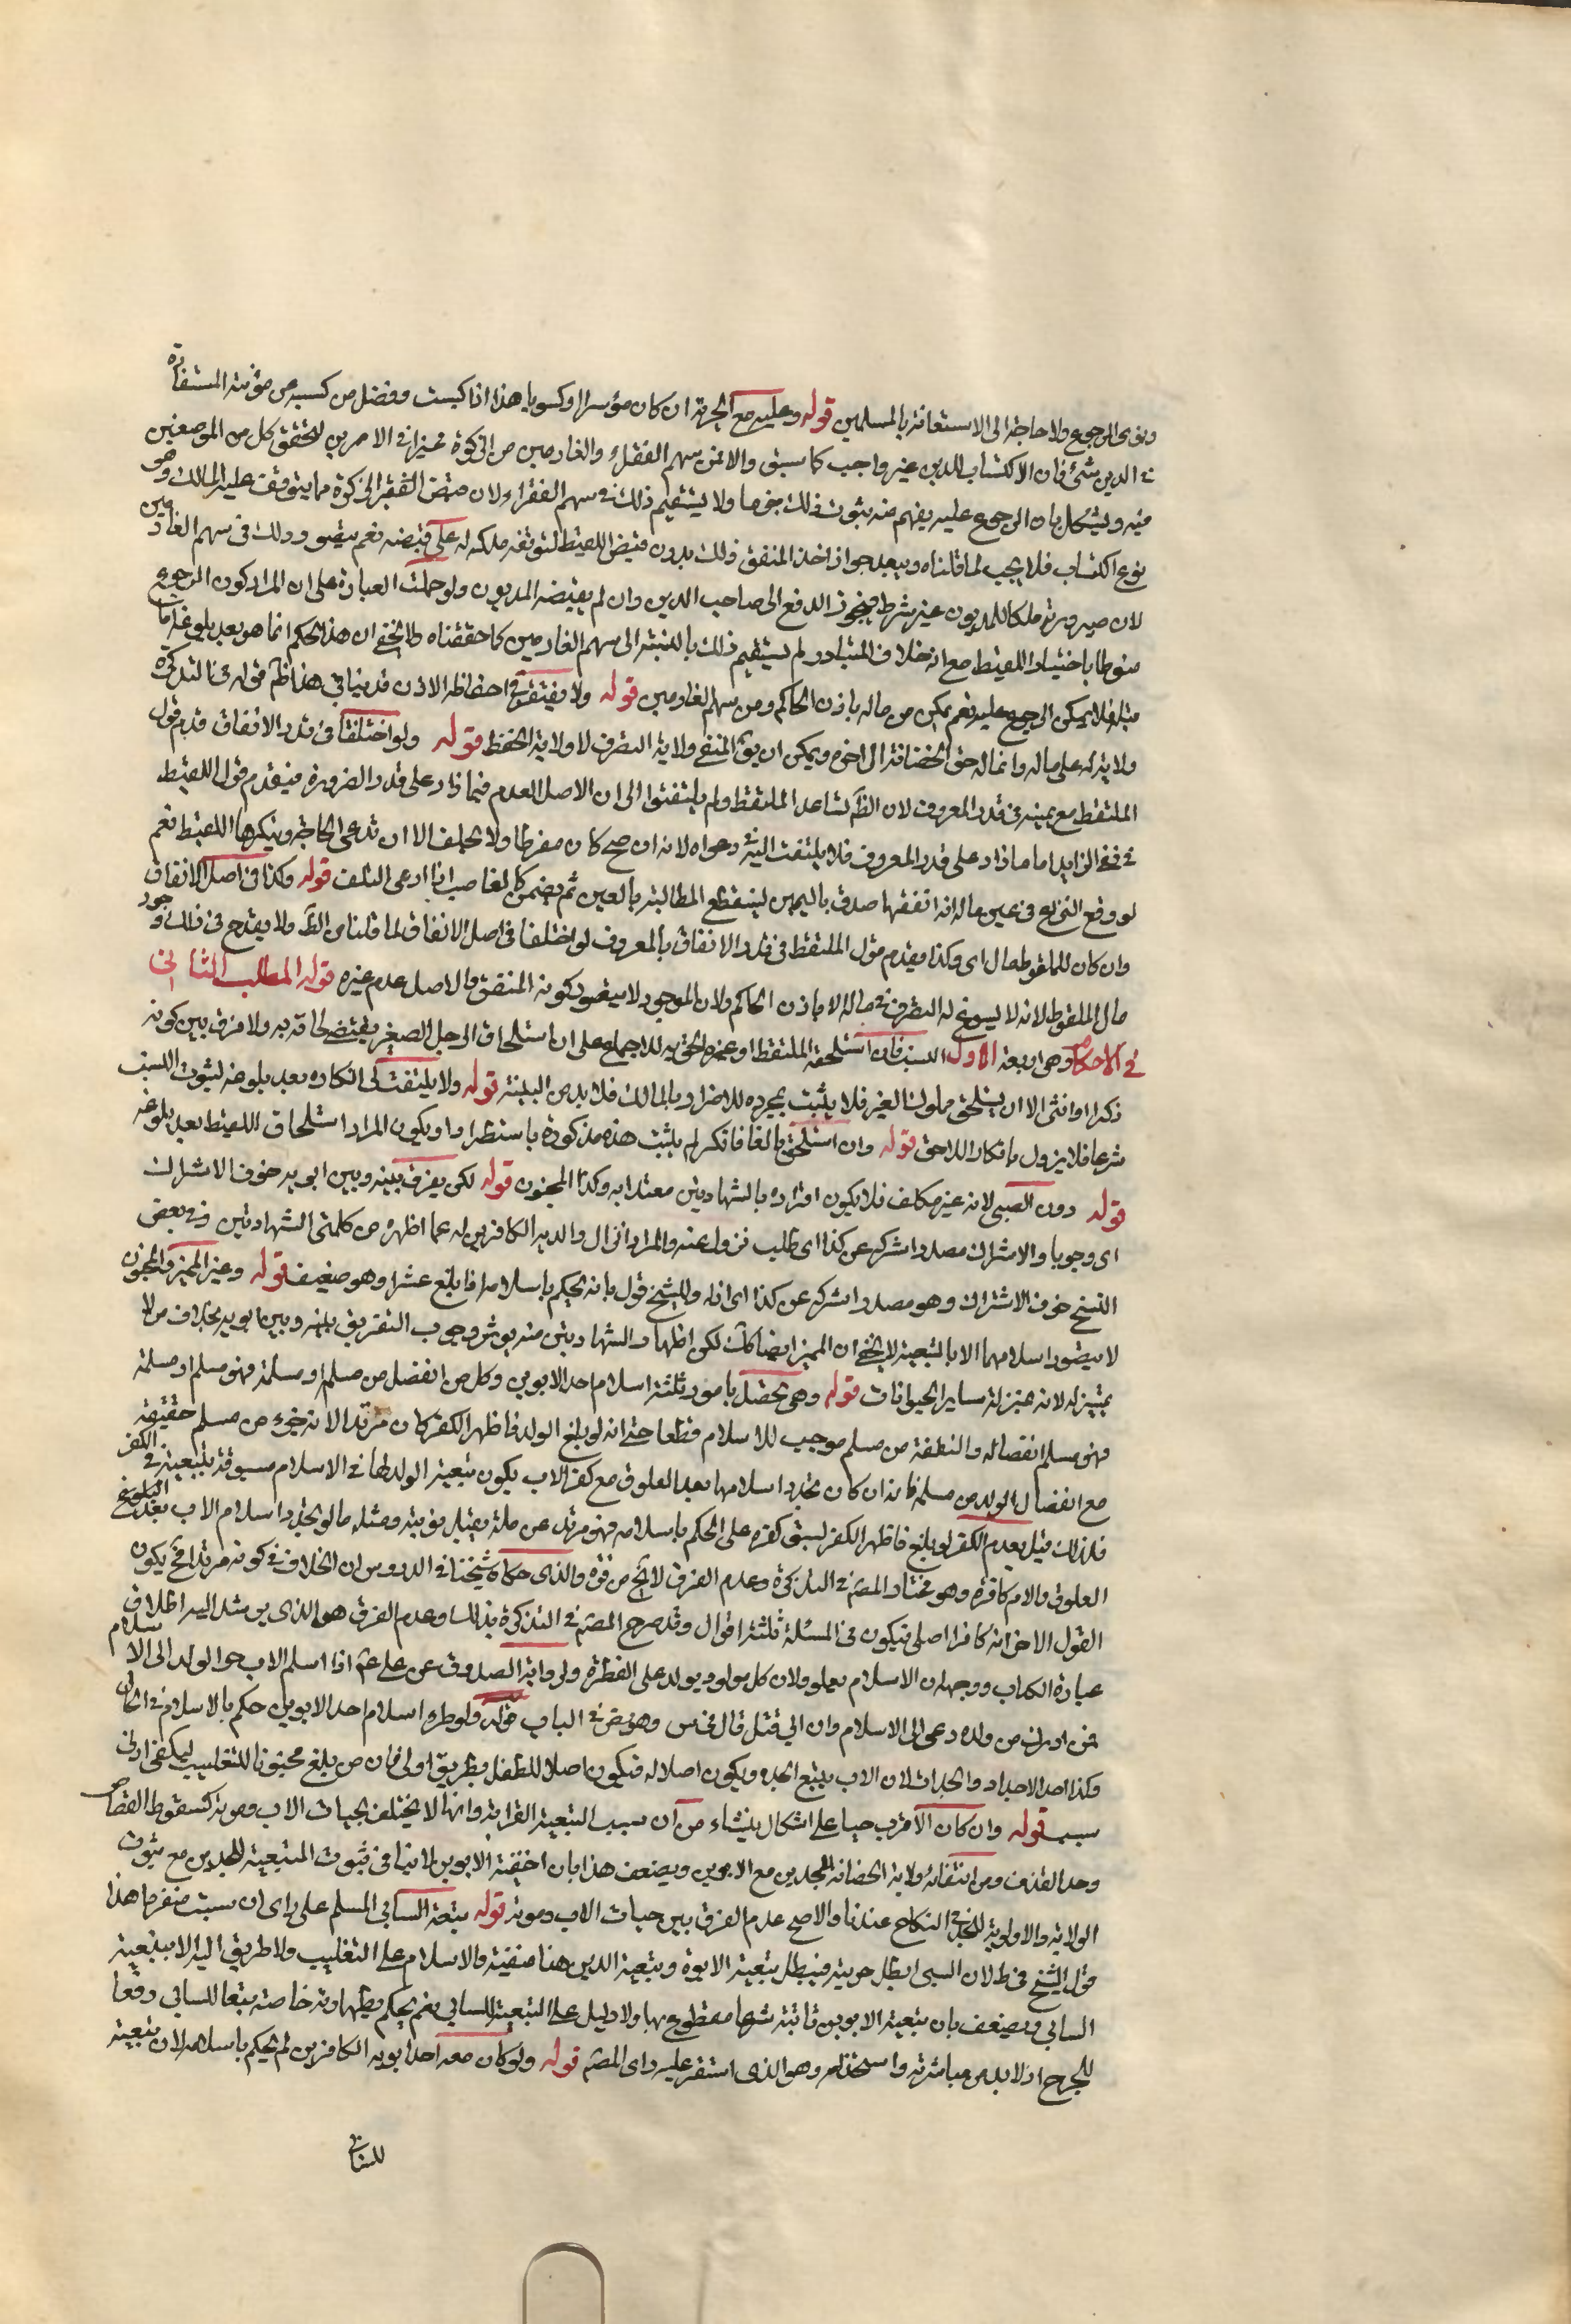 ونوى الرجوع ولا حاجة الى الاستعانة بالمسلمين قوله وعليه مع الحرية ان كان موسرا او كسوبا هذا اذا كسب وفضل من كسبه عن مؤنته المستفادة
في الدين شئ فان الاكتساب للدين غير واجب كما سبق والا فمن سهم الفقراء والغارمين من الزكوة مخيرا في الامرين لتحقق كل من الموضعين
فيه ويشكل بان الرجوع عليه يفهم منه ثبوت ذلك جزما ولا يستقيم ذلك في سهم الفقراء لان قبض الفقير الزكوة مما يتوقف عليه الملك وهو
نوع اكتساب فلا يجب لما قلناه ويبعد جواز اخذ المنفق ذلك بدون قبض اللقيط لتوقف ملكه له على قبضه نعم يتصور ذلك في سهم الغارمين
لان صيرورته ملكا للمديون غير شرط فيجوز الدفع الى صاحب الدين وان لم يقبضه المديون ولو حملت العبارة على ان المراد كون الرجوع
منوطا باختيار اللقيط مع انه خلاف المتبادر لم يستقيم ذلك بالنسبة الى سهم الغارمين كما حققناه ولا يخفى ان هذا الحكم انما هو بعد بلوغه اما
قبله فلا يمكن الرجوع عليه نعم يمكن من ماله باذن الحاكم ومن سهم الغارمين قوله ولا يفتقر في احتفاظه الاذن قد ينافي هذا ظاهر قوله في التذكرة
ولا يترك على ماله وانما له حق الحضانة الى اخره ويمكن ان يق المنفي ولاية التصرف لا ولاية الحفظ قوله ولو اختلفا في قدر الانفاق قدم قول
الملتقط مع يمينه في قدر المعروف لان الظ يساعد الملتقط ولم يلتفتوا الى ان الاصل العدم فيما زاد على قدر الضرورة فيقدم قول اللقيط
في نفي الزايد اما ما زاد على قدر المعروف فلا يلتفت اليه في دعواه لانه ان صح كان مفرطا ولا يحلف الا ان تدعى الحاجة وينكرها اللقيط نعم
لو وقع النزاع في عين ماله انه انفقها صدق باليمين لينقطع المطالبة بالعين ثم يضمن كالغاصب اذا ادعى التلف قوله وكذا في اصل الانفاق
وان كان للملقوط مال اى وكذا يقدم قول الملتقط في قدر الانفاق بالمعروف لو اختلفا في اصل الانفاق لما قلنا من الظ ولا يقدح في ذلك وجود
مال الملقوط لانه لا يسوغ له التصرف في ماله الا باذن الحاكم ولان الموجود لا يتصور كونه المنفق والاصل عدم غيره قوله المطلب الثاني
في الاحكام وهي اربعة الاول النسب فان استلحقه الملتقط او غيره الحق به للاجماع على ان استلحاق الرجل الصغير يقتضي لحاقه به ولا فرق بين كونه
ذكرا او انثى الا ان يستلحق مملوك الغير فلا يثبت بمجرده للاضرار بالمالك فلا بد من البينة قوله ولا يلتفت الى انكاره بعد بلوغه لثبوت النسب
شرعا فلا يزول بانكار اللاحق قوله وان استلحق بالغا فانكر لم يثبت هذه مذكورة باستطرادا ويكون المراد استلحاق اللقيط بعد بلوغه
قوله دون الصبي لانه غير مكلف فلا يكون اقراره بالشهادتين معتدا به وكذا المجنون قوله لكن يفرق بينه وبين ابويه خوف الاشراك
اى وجوبا والاشراك مصدر اشركه عن كذا اى طلب نزوله عنه والمراد انزال والديه الكافرين له عما اظهره من كلمتى الشهادتين وفي بعض
النسخ خوف الاشتراك وهو مصدر اشركه عن كذا اى ازله وللشيخ قول بانه يحكم باسلامه اذا بلغ عشرا وهو ضعيف قوله وغير المميز والمجنون
لا يتصور اسلامهما الا بالتبعية لا يخفى ان المميز ايضا كك لكن اظهار الشهادتين منه يورث وجوب التفريق بينه وبين ابويه بخلاف من لا
تمييز له لانه بمنزلة ساير الحيوانات قوله وهي تحصل بامور ثلثة اسلام احد الابوين وكل من انفصل من مسلم او مسلمة فهو مسلم او مسلمة
فهو مسلم انفصاله والنطفة من مسلم موجب للاسلام قطعا حتى انه لو بلغ الولد فاظهر الكفر كان مرتدا لانه جزء من مسلم حقيقة
مع انفصال الولد من مسلمة فانه ان كان تجدد اسلامها بعد العلوق مع كفر الاب يكون تبعية الولد لها في الاسلام مسبوقة بتبعيته في الكفر
فلذلك قيل بعدم الكفر لو بلغ فاظهر الكفر لسبق كفره على الحكم باسلامه فهو مرتد عن ملة يقبل توبته ومثله ما لو تجدد اسلام الاب بعد البلوغ
العلوق والام كافرة وهو مختار المص في التذكرة وعدم الفرق لا يخ من قوة والذى حكاه شيخنا في الدروس ان الخلاف في كونه مرتدا فح يكون
القول الاخر انه كافر اصلي فيكون في المسئلة ثلثة اقوال وقد صرح المص في التذكرة بذلك وعدم الفرق هو الذى يرشد اليه اطلاق
عبارة الكتاب ووجهه ان الاسلام يعلو ولان كل مولود يولد على الفطرة ولرواية الصدوق عن علي ع اذا اسلم الاب جر الولد الى الاسلام
فمن ادرك من ولده دعى الى الاسلام وان ابي قتل قال في س وهو نص في الباب قوله ولو طرء اسلام احد الابوين حكم بالاسلام في الحال
وكذا احد الاجداد والجدات لان الاب يتبع الجد ويكون اصلا له فيكون اصلا للطفل بطريق اولى فان من بلغ مجنونا للتغليب ليكفي ادنى
سبب قوله وان كان الاقرب حيا على اشكال ينشاء من ان سبب التبعية القرابة وانها لا يختلف بحيات الاب وموته كسقوط القصاص
وحد القذف ومن انتفاء ولاية الحضانة للجدين مع الابوين ويضعف هذا بان احقية الابوين لا ينافي ثبوت التبعية للجدين مع ثبوت
الولاية والاولوية للجد في النكاح عندنا والاصح عدم الفرق بين حيات الاب وموته قوله تبعية السابى المسلم على راى ان سبى منفردا هذا
قول الشيخ في ط لان السبى ابطل حريته فيبطل تبعية الابوة وتبعية الدين هنا منفية والاسلام على التغليب ولا طريق اليه الا بتبعية
السابى ويضعف بان تبعية الابوين ثابتة شرعا مقطوع بها ولا دليل على التبعية للسابى نعم يحكم بطهارته خاصة تبعا للسابى دفعا
للحرج اذ لا بد من مباشرته واستخدامه وهو الذى استقر عليه راى المص قوله ولو كان معه احد ابويه الكافرين لم يحكم باسلامه لان تبعية
للسابى